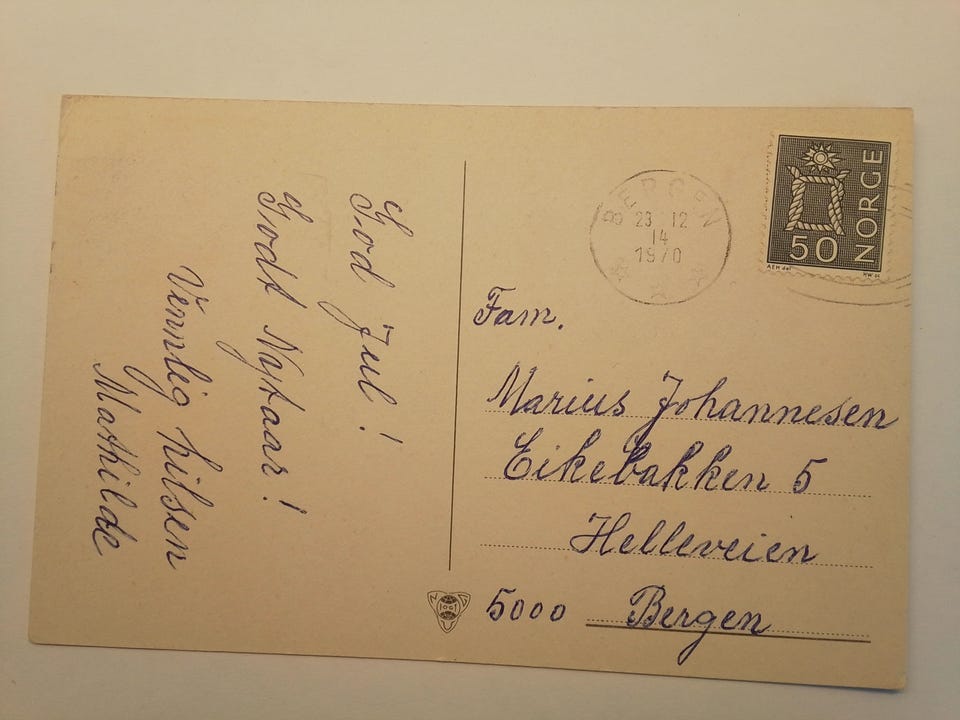 God Jul!
Godt Nytaar!
Vennlig hilsen
Mathilde
BERGEN
23 12
14
1970
NORGE
50
Fam.
Marius Johannesen
Eikebakken 5
Helleveien
5000 Bergen